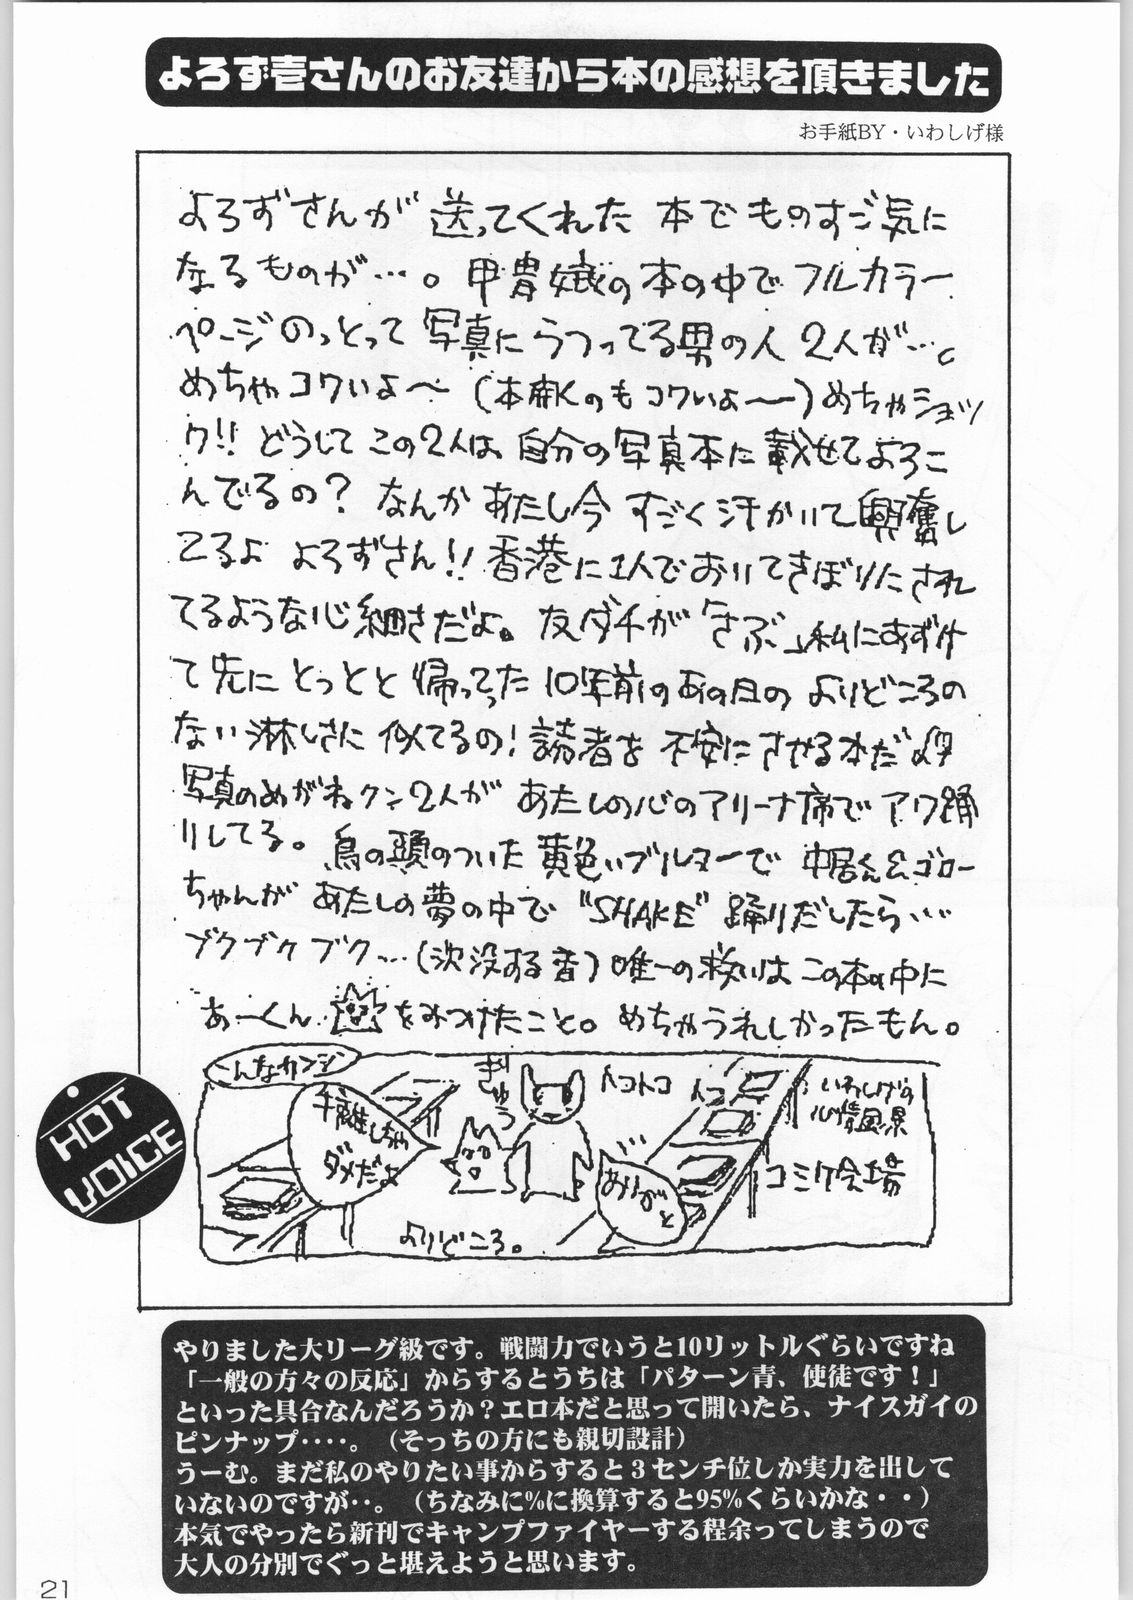 よろず壱さんのお友達から本の感想を頂きました
お手紙BY・いわしげ様
よろずさんが 送ってくれた 本で ものすご気に
なるものが…。甲冑娥の本の中で フルカラー
ページのっとって 写真に うつってる男の人 2人が…。
めちゃコワいよ〜 (本開くのも コワいよ〜)めちゃショッ
ク!! どうして この2人は 自分の写真本に載せてよろこ
んでるの? なんか あたし今 すごく汗かいて興奮し
てるよ よろずさん!! 香港に1人で おいてきぼりにされ
てるような心細さだよ。友ダチが「さぶ」私にあずけ
て 先に とっとと 帰ってった 10年前の あの日の よりどころの
ない 淋しさに 似てるの! 読者を 不安にさせる本だよ
写真のめがねクン2人が あたしの心のアリーナ席で アワ踊
りしてる。鳥の頭のついた 黄色いブルマーで 中居くん&ゴロー
ちゃんが あたしの夢の中で "SHAKE" 踊りだしたら…
ブクブクブク…(沈没する音) 唯一の救いは この本の中に
あーくん をみつけたこと。めちゃうれしかったもん。
こんなカンジ
手離しちゃ
ダメだよ
ぎゅう
トコトコ
トコ
ありがと
よりどころ。
いわしげの
心情風景
コミケ会場
HOT
VOICE
やりました大リーグ級です。戦闘力でいうと10リットルぐらいですね
「一般の方々の反応」からするとうちは「パターン青、使徒です!」
といった具合なんだろうか?エロ本だと思って開いたら、ナイスガイの
ピンナップ‥‥。(そっちの方にも親切設計)
うーむ。まだ私のやりたい事からすると3センチ位しか実力を出して
いないのですが‥。(ちなみに%に換算すると95%くらいかな・・)
本気でやったら新刊でキャンプファイヤーする程余ってしまうので
大人の分別でぐっと堪えようと思います。
21